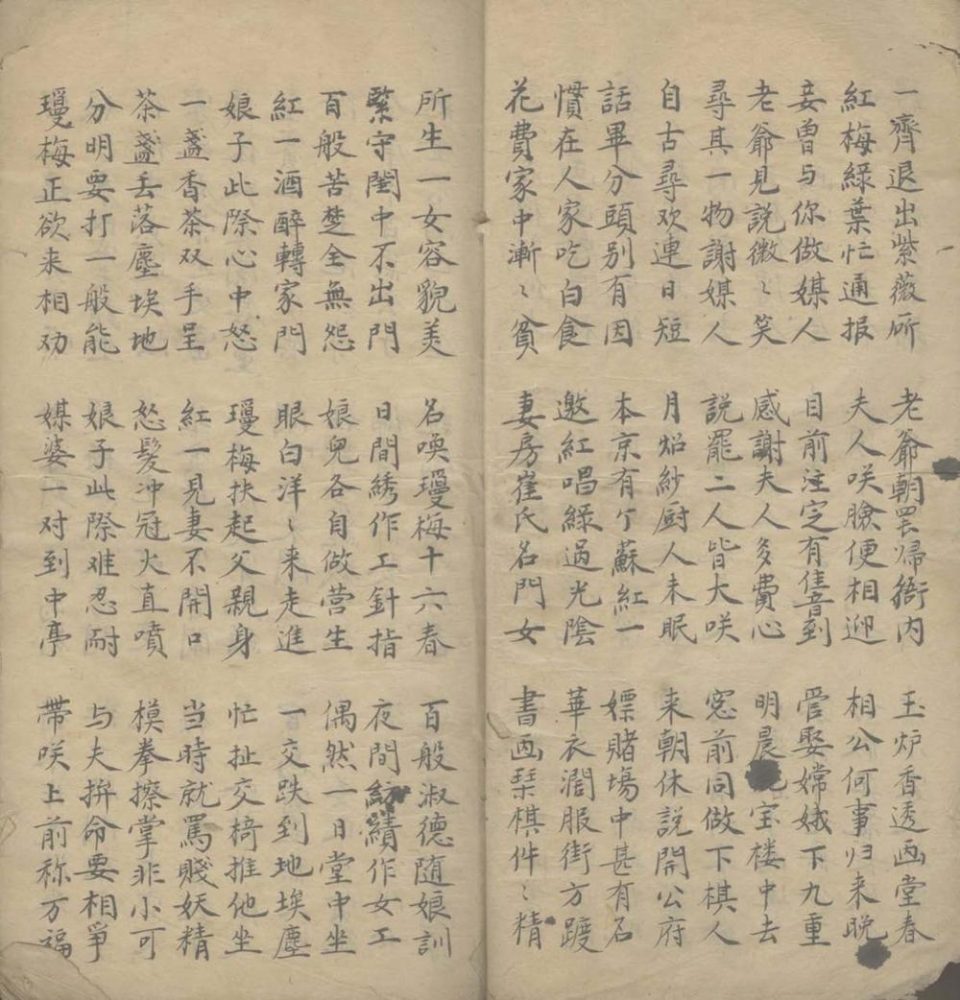 一齊退出紫薇所 老爺朝罢帰衙内 玉炉香透画堂春
紅梅綠葉忙通报 夫人咲臉便相迎 相公何事归来晚
妾曾与你做媒人 目前注定有佳音到 管娶嫦娥下九重
老爺見說微〻笑 感謝夫人多費心 明晨宝楼中去
尋其一物謝媒人 說罷二人皆大咲 窓前同做下棋人
自古尋欢連日短 月炤紗厨人未眠 来朝休說開公府
話畢分頭别有因 本京有个蘇紅一 嫖賭場中甚有名
慣在人家吃白食 邀紅唱綠過光陰 華衣濶服街方踱
花費家中漸〻貧 妻房崔氏名門女 書画琹棋件〻精
所生一女容貌美 名喚瓊梅十六春 百般淑德隨娘訓
緊守閨中不出門 日間綉作工針指 夜間紡績作女工
百般苦楚全無怨 娘兒各自做营生 偶然一日堂中坐
紅一酒醉轉家門 眼白洋〻来走進 一交跌到地埃塵
娘子此際心中怒 瓊梅扶起父親身 忙扯交椅推他坐
一盏香茶双手呈 紅一見妻不開口 当時就罵賤妖精
茶盞丢落塵埃地 怒髮冲冠火直噴 模拳擦掌非小可
分明要打一般能 娘子此際难忍耐 与夫拚命要相爭
瓊梅正欲来相劝 媒婆一对到中亭 带咲上前称万福